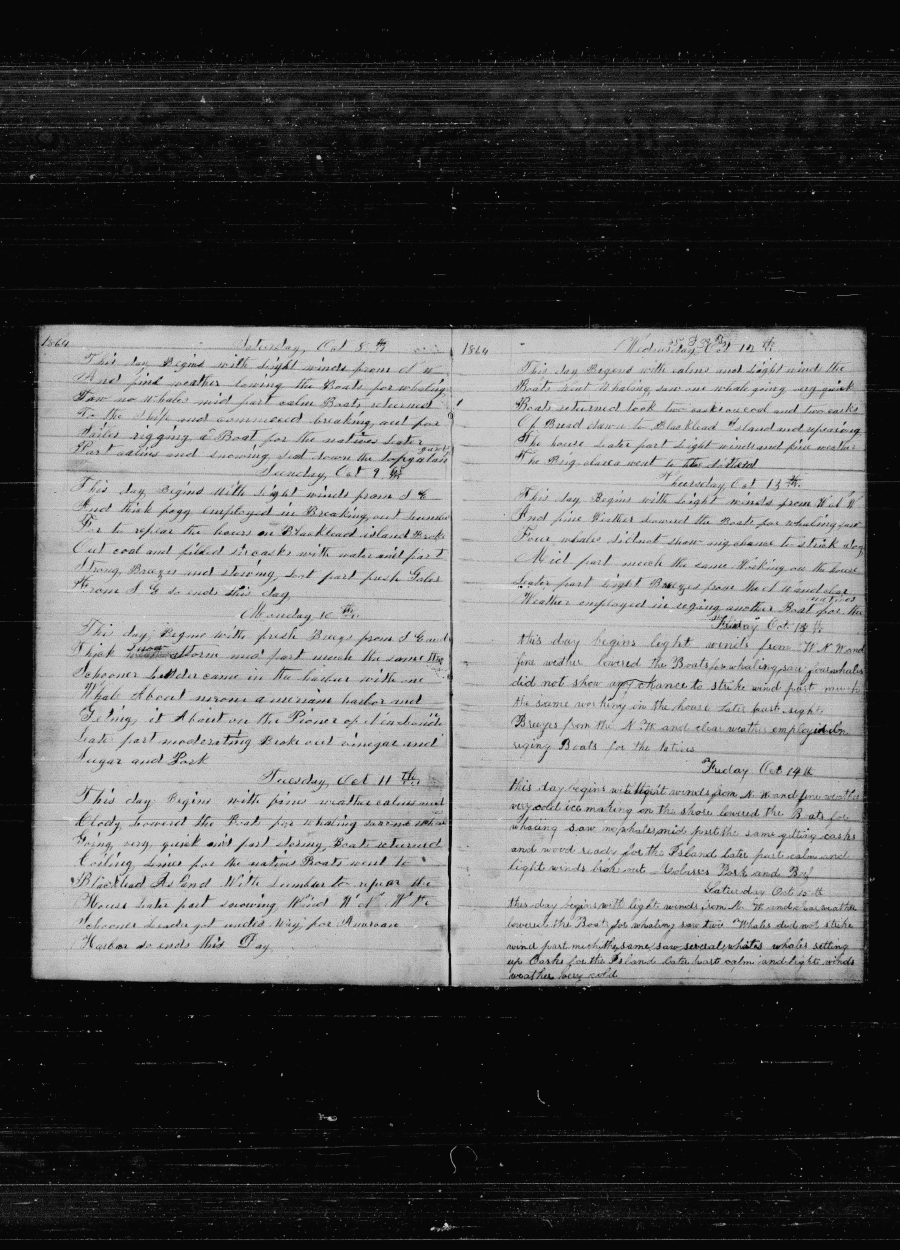 1864
Saturday, Oct 8 th
This day Begins with Light winds from S W
And fine weather lowing the Boats for whaling
Saw no Whales mid part calm Boats returned
To the Ship and commenced breaking out for
rigging a Boat for the natives Later
Part calms and snowing, sent down the topgalan
Sunday, Oct 9 th
This day Begins With Light winds from S E
And thick fogg employed in Breaking out
For to repair the hours on Blacklead island Broke
Out coal and filled six casks with water mid part
Strong Breezes and snowing, Last part fresh Gales
From S E so ends this day
Monday 10 th
This day Begins with fresh Breezes from S E and
Thick snow storm mid part much the same the
Schooner came in the harbor with one
Whale About harbor and
it About on the Pioneer of
Late part moderating Broke out vinegar and
Sugar and Pork
Tuesday, Oct 11 th
This day Begins with fine weather calms and
Clody Lowered the Boats for whaling
Going very quick mid part Boats returned
Coiling Lines for the natives Boats went to
Blacklead Island With Lumber to repair the
House Late part snowing Wind W N W the
Schooner got under way for
Harbor so ends this Day
1864
Wednesday Oct 12 th
This day Begins with calms and Light wind the
Boats went Whaling saw one whale going very quick
Boats returned took two casks coal and two casks
Of Bread down to Blacklead Island and repairing
The house Later part Light winds and fine weather
The Brig went to
Thursday Oct 13 th
This day Begins with Light winds from W N W
And fine Weather Lowered the Boats for whaling saw
Four whales did not show any chance to strick
Mid part much the same Working on the house
Later part Light Breezes from the N W and clear
Weather employed in riging another Boat for the
natives
Friday Oct 14 th
this day begins light winds from W N W and
fine wether lowered the Boats for whaling saw four whales
did not show any chance to strike mid part much
the same working on the house later part light
Breezes from the N. W and clear weather employed in
riging Boats for the
Friday Oct 14 th
this day begins with light winds from N. W and fine weather
very cold ice making on the shore lowered the Boats for
whaling saw no whales mid part the same getting casks
and wood ready for the Island later part calm and
light winds brok out Molasses Pork and Beef
Saturday Oct 15 th
this day begins with light winds from N. W and clear weather
lowered the Boats for whaling saw two Whales did not strike
mid part much the same saw several whales setting
up Casks for the Island later part calm and light winds
weather very cold